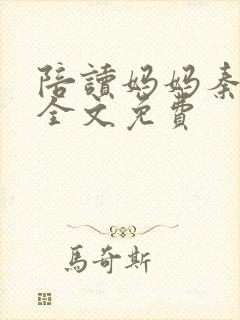 陪讀妈妈秦
全文免費
馬奇斯